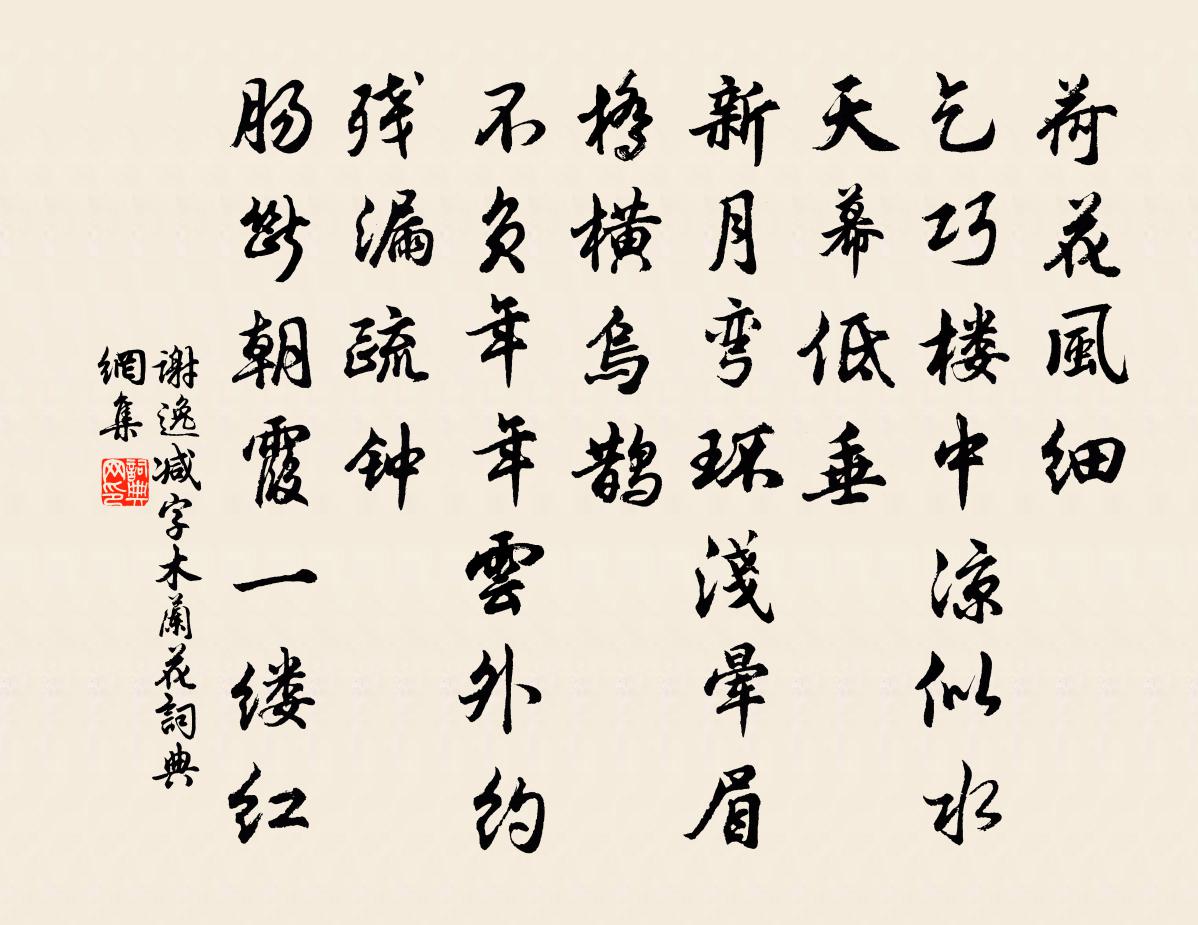 荷花風细
乞巧楼中凉似水
天幕低垂
新月弯环淺暈眉
橋横烏鹊
不负年年雲外约
残漏疏钟
肠断朝霞一缕红
谢逸减字木蘭花詞典
網集
詞典
网印